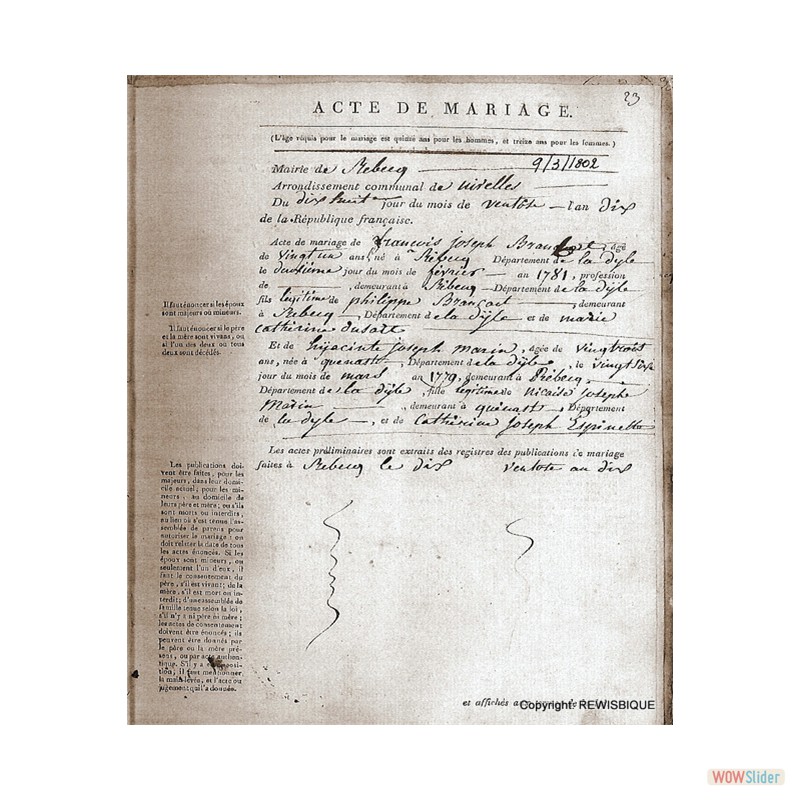 23
ACTE DE MARIAGE.
(L'âge réquis pour le mariage est quinze ans pour les hommes, et treize ans pour les femmes.)
9/3/1802
Mairie de Rebecq
Arrondissement communal de nivelles
Du dix huit jour du mois de ventôse l'an dix
de la République française.
Acte de mariage de françois joseph âgé
de vingt un ans, né à Rebecq Département de la dyle
le deuxième jour du mois de février an 1781, profession
de , demeurant à Rebecq Département de la dyle
fils légitime de philippe Brancart , demeurant
à Rebecq , Département de la dyle et de marie
catherine dusart
Et de hyacinte joseph marin , âgée de vingt trois
ans, née à quenast , Département de la dyle , le vingt
jour du mois de mars an 1779, demeurant à Rebecq,
Département de la dyle , fille légitime de nicaise joseph
marin , demeurant à quenast , Département
de la dyle , et de catherine joseph Espinette
Les actes préliminaires sont extraits des registres des publications de mariage
faites à Rebecq le dix ventose an dix
Il faut énoncer si les époux
sont majeurs ou mineurs.
Il faut énoncer si le père
et la mère sont vivans, ou
si l'un des deux ou tous
deux sont décédés.
Les publications doi-
vent être faites, pour les
majeurs, dans leur domi-
cile actuel; pour les mi-
neurs, au domicile de
leurs père et mère; ou s'ils
sont morts ou interdits,
au lieu où s'est tenue l'as-
semblée de parens pour
autoriser le mariage: on
doit relater la date de tous
les actes énoncés. Si les
époux sont mineurs, ou
seulement l'un d'eux, il
faut le consentement du
père, s'il est vivant; de la
mère, s'il est mort ou in-
terdit; d'une assemblée de
famille tenue selon la loi,
s'il n'y a ni père ni mère;
les actes de consentement
doivent être énoncés; ils
peuvent être donnés par
le père ou la mère pré-
sens, ou par acte authen-
tique. S'il y a opposi-
tion, il faut mentionner
la main-levée, et l'acte ou
jugement qui l'a donnée.
et affichés aux
Copyright REWISBIQUE
WOWSlider